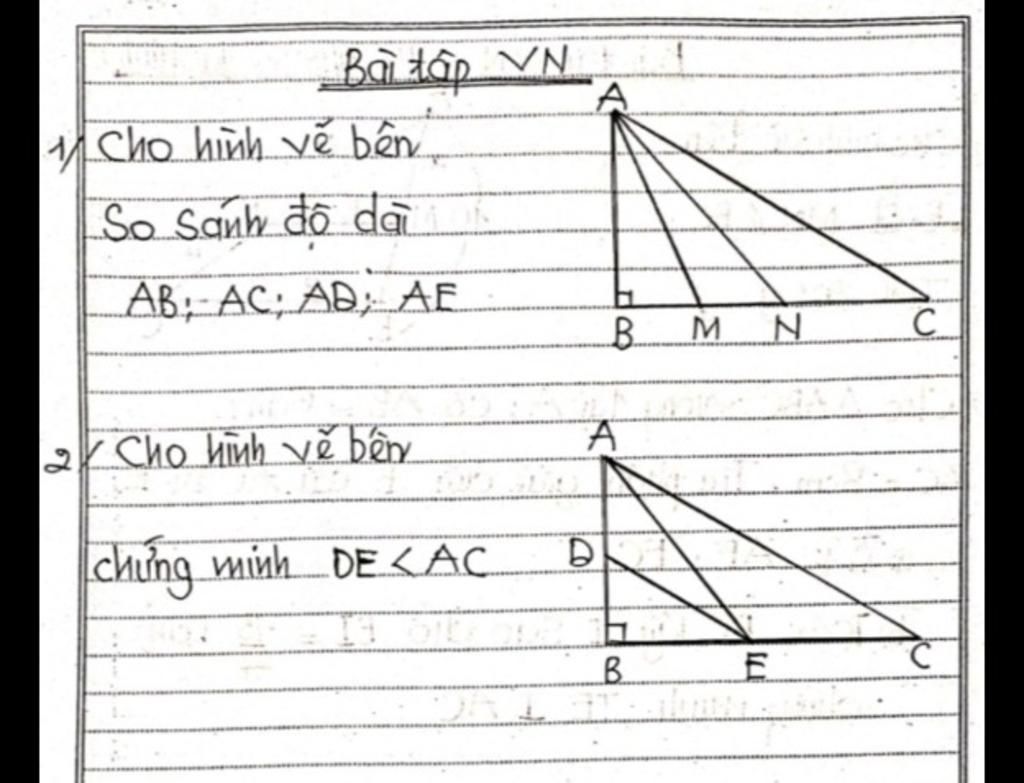 Bài tập VN
1/ Cho hình vẽ bên
So sánh độ dài
AB; AC; AD; AE
A
B M N C
2/ Cho hình vẽ bên
chứng minh DE < AC
A
D
B E C